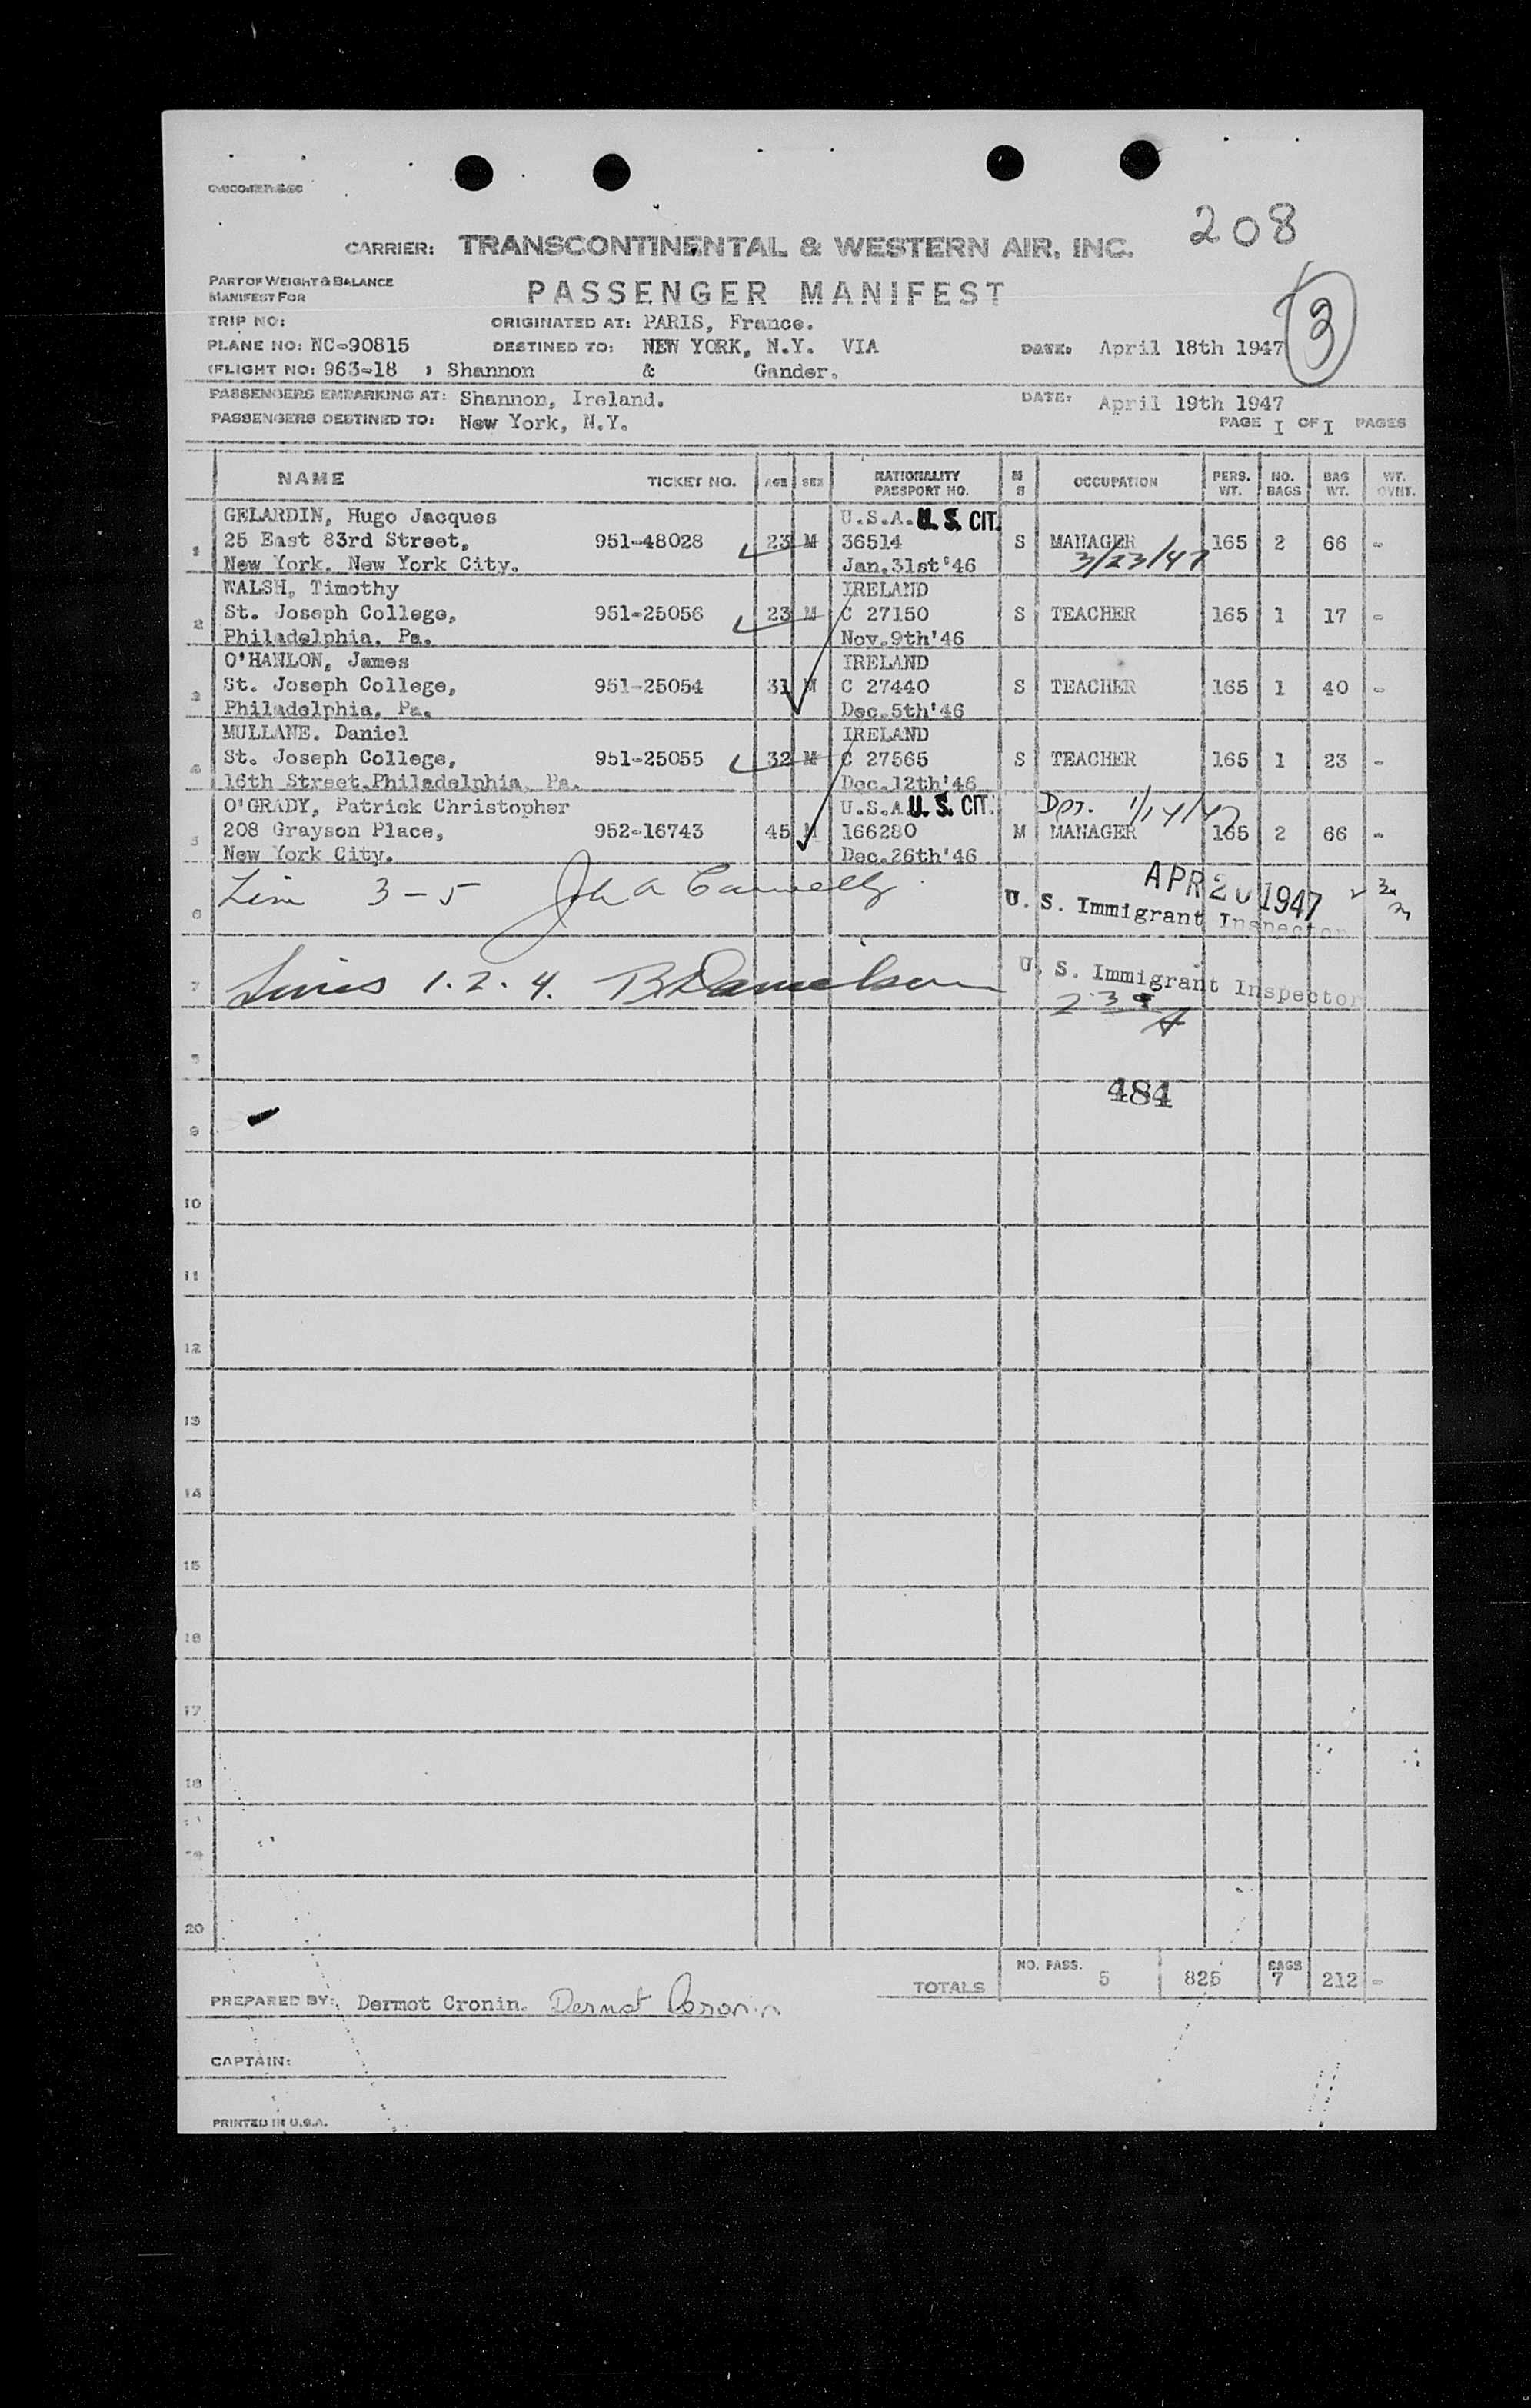 208
CARRIER: TRANSCONTINENTAL & WESTERN AIR, INC.
PART OF WEIGHT & BALANCE
MANIFEST FOR
PASSENGER MANIFEST
3
TRIP NO: ORIGINATED AT: PARIS, France.
PLANE NO: NC-90815 DESTINED TO: NEW YORK, N.Y. VIA DATE: April 18th 1947
(FLIGHT NO: 963-18 ) Shannon & Gander.
PASSENGERS EMBARKING AT: Shannon, Ireland. DATE: April 19th 1947
PASSENGERS DESTINED TO: New York, N.Y. PAGE I OF I PAGES
NAME TICKET NO. AGE SEX NATIONALITY PASSPORT NO. M S OCCUPATION PERS. WT. NO. BAGS BAG WT. WT. OVNT.
GELARDIN, Hugo Jacques U.S.A. U.S. CIT.
1 25 East 83rd Street, 951-48028 23 M 36514 S MANAGER 165 2 66 -
New York. New York City. Jan.31st'46 3/23/47
WALSH, Timothy IRELAND
2 St. Joseph College, 951-25056 23 M C 27150 S TEACHER 165 1 17 -
Philadelphia. Pa. Nov.9th'46
O'HANLON, James IRELAND
3 St. Joseph College, 951-25054 31 M C 27440 S TEACHER 165 1 40 -
Philadelphia. Pa. Dec.5th'46
MULLANE. Daniel IRELAND
4 St. Joseph College, 951-25055 32 M C 27565 S TEACHER 165 1 23 -
16th Street.Philadelphia. Pa. Dec.12th'46
O'GRADY, Patrick Christopher U.S.A U.S. CIT.
5 208 Grayson Place, 952-16743 45 M 166280 M MANAGER 165 2 66 -
New York City. Dec.26th'46
6 3-5 APR 20 1947
U. S. Immigrant Inspector
7 Lines 1. 2. 4. U. S. Immigrant Inspector
484
9
10
11
12
13
14
15
16
17
18
19
20
TOTALS NO. PASS. 5 825 BAGS 7 212 -
PREPARED BY: Dermot Cronin. Dermot Cronin
CAPTAIN:
PRINTED IN U.S.A.